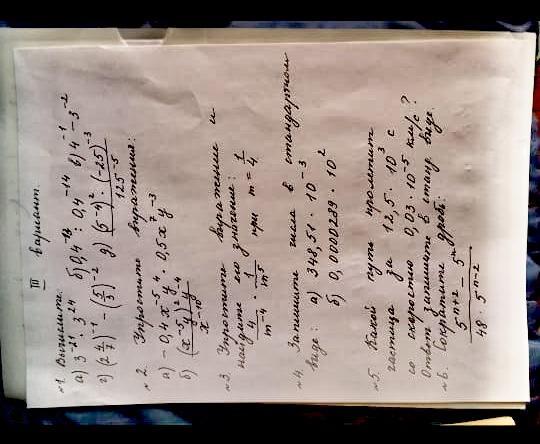 III вариант.
№1. Вычислите:
а) 3⁻²¹ · 3²⁴ б) 0,4⁻¹² : 0,4⁻¹⁴ в) 4⁻¹ − 3⁻²
г) (2 4/7)⁻¹ − (5/3)⁻² д) (5⁻⁷)² · (−25)⁻³ / 125⁻⁵
№2. Упростите выражения:
а) −0,4x⁻⁵y⁴ · 0,5x⁷y⁻³
б) (x⁻⁵y⁴)² y⁴ / x⁻¹⁰
№3. Упростите выражение и
найдите его значение:
4/m⁻⁴ · 1/m⁵ при m = 1/4
№4. Запишите числа в стандартном
виде: а) 348,51 · 10⁻³
б) 0,0000289 · 10²
№5. Какой путь пролетит
частица за 12,5 · 10³ с
со скоростью 0,03 · 10⁻⁵ км/с?
Ответ запишите в станд. виде.
№6. Сократите дробь:
5ⁿ⁺² − 5ⁿ / 48 · 5ⁿ⁻²